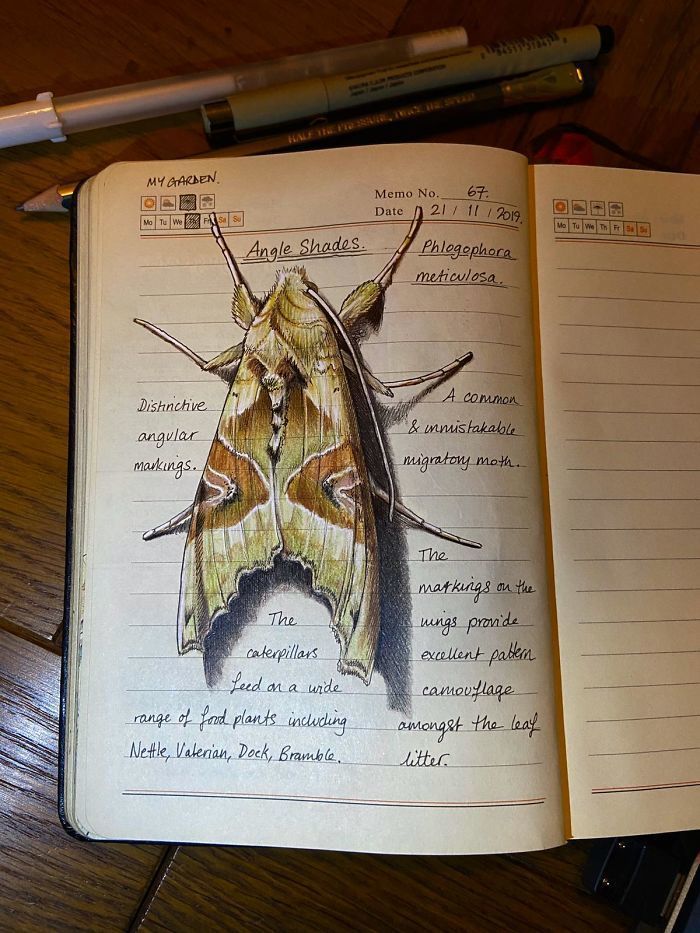 SAKURA COLOR PRODUCTS CORPORATION
Japan / Japon / Japan
HALF THE PRESSURE, TWICE THE SPEED
MY GARDEN.
Memo No. 67.
Mo Tu We Fr Sa Su
Date 21 / 11 / 2019.
Mo Tu We Th Fr Sa Su
Angle Shades.
Phlogophora
meticulosa.
Distinctive
angular
markings.
A common
& unmistakable
migratory moth.
The
markings on the
wings provide
excellent pattern
camouflage
amongst the leaf
litter.
The
caterpillars
feed on a wide
range of food plants including
Nettle, Valerian, Dock, Bramble.